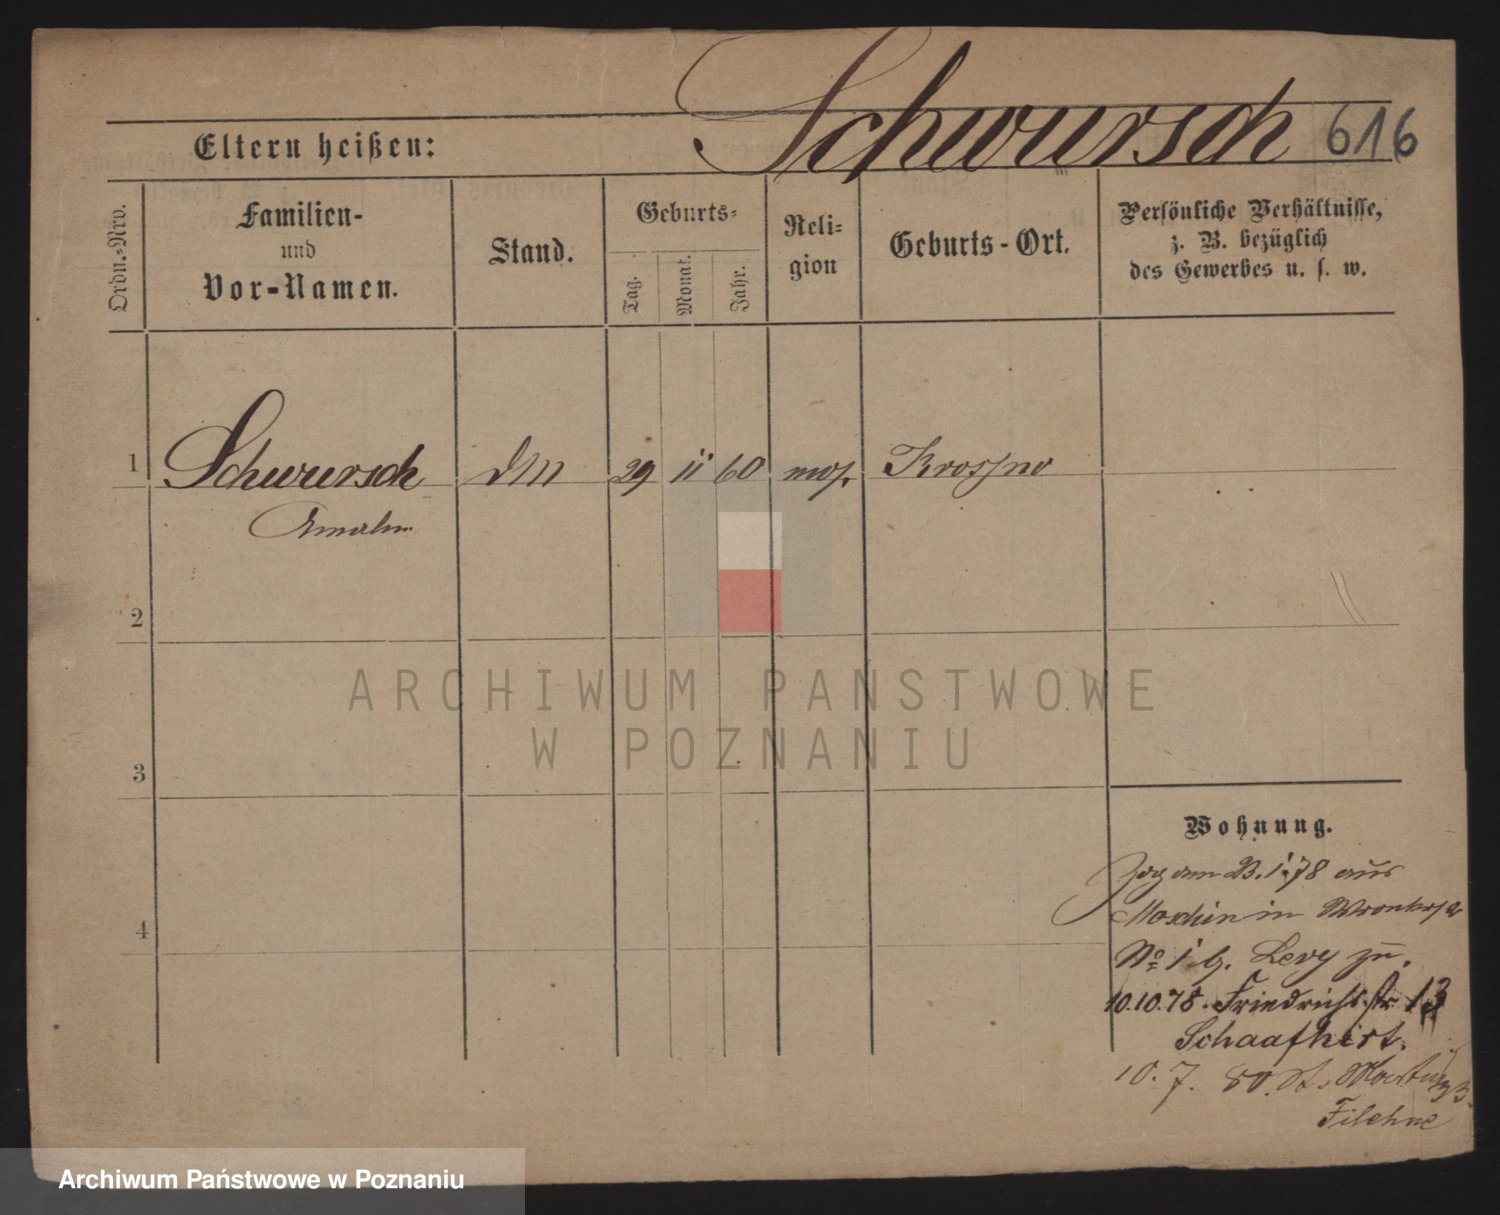 Schwursch 616
Eltern heißen:
Ordn.-Nro.
Familien-
und
Vor-Namen.
Stand.
Geburts-
Tag.
Monat.
Jahr.
Reli-
gion
Geburts-Ort.
Persönliche Verhältnisse,
z. B. bezüglich
des Gewerbes u. s. w.
1 Schwursch DM 29 11 60 mos. Krosno
2
3
4
Wohnung.
Zog am 23.1.78 aus
Moschin in
No 1 b. Levy zu.
10.10.78. Friedrichsstr 13
Schaafhirt.
10. 7. 80. St. Martin
Filehne
ARCHIWUM PAŃSTWOWE
W POZNANIU
Archiwum Państwowe w Poznaniu